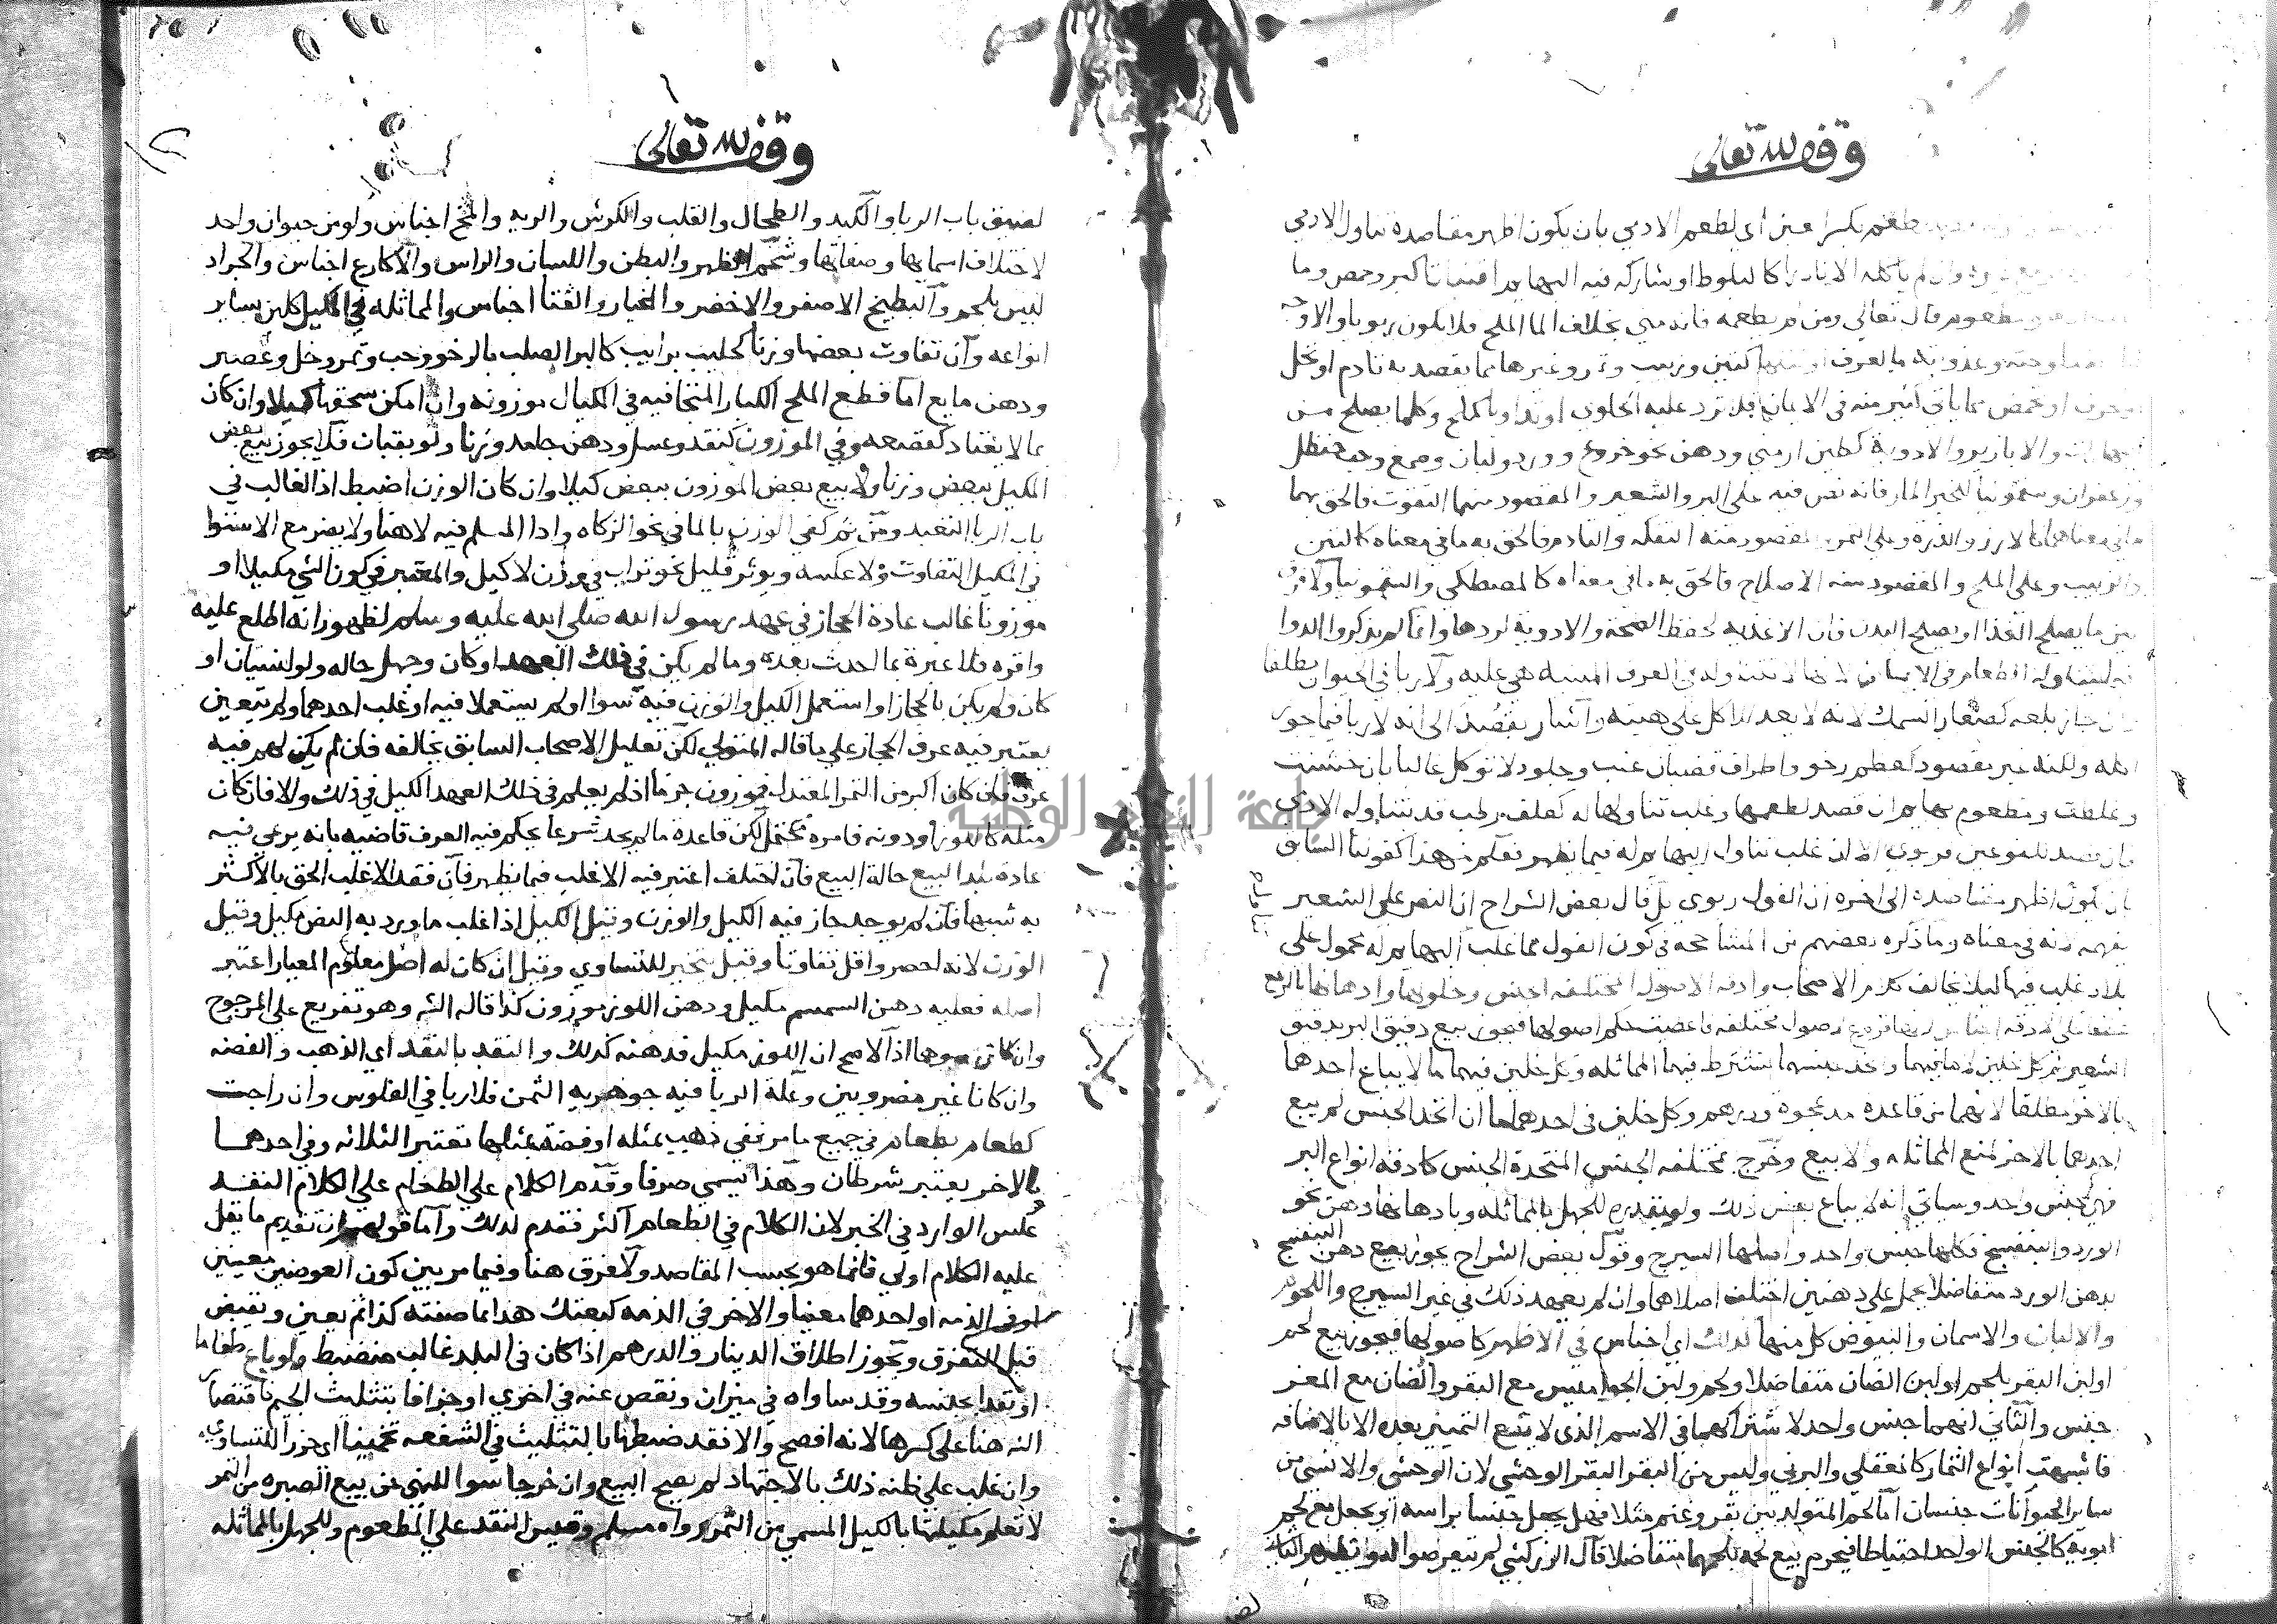 وقف لله تعالى
طعم بكسر عين اي لطعم الادمي بان يكون اظهر مقاصده تناول الادمي
وان لم ياكله الا نادرا كالبلوط او شاركه فيه البهايم
مطعوم قال تعالى ومن لم يطعمه فانه مني بخلاف الما الملح فلا يكون ربويا والاوجه
وعذوبته بالعرف كتين وزبيب وتمر وغيرها مما يقصد به تادم او تحل
او تحرف او تحمض مما ياتي كثير منه في الايمان فلا ترد عليه الحلوى او تداويا كملح وكلما يصلح من
البهارات والابازير والادوية كطين ارمني ودهن نحو خروع وورد ولبان وصمغ وحب حنظل
وزعفران وسقمونيا للخبر المار فانه نص فيه على البر والشعير والمقصود منهما التقوت فالحق بهما
ما في معناهما كالارز والذرة وعلى التمر والمقصود منه التفكه والتادم فالحق به ما في معناه كالتين
والزبيب وعلى الملح والمقصود منه الاصلاح فالحق به ما في معناه كالمصطكى والسقمونيا ولا فرق
بين ما يصلح الغذا او يصلح البدن فان الاغذية لحفظ الصحة والادوية لردها وانما لم يذكروا الدوا
فيما يتناوله الطعام في الايمان لانها لا تتناوله في العرف المبنية هي عليه ولا ربا في الحيوان مطلقا
وان جاز بلعه كصغار السمك لانه لا يعد للاكل على هيئته واشار بقصد الى انه لا ربا فيما يجوز
اكله ولكنه غير مقصود كعظم رخو واطراف قضبان عنب وجلود لا توكل غالبا بان خشنت
وغلظت ومطعوم بهايم ان قصد لطعمها وغلب تناولها له كعلف رطب قد يتناوله الادمي
فان قصد للنوعين فربوي الا ان غلب تناول البهايم له فيما يظهر فعلم من هذا كقولنا السابق
بان يكون اظهر مقاصده الى اخره ان الفول ربوي بل قال بعض الشراح ان النص على الشعير
يفهمه لانه في معناه وما ذكره بعضهم من المشاححة في كون الفول مما غلب البهايم له محمول على
بلاد غلب فيها ليلا يخالف كلام الاصحاب وادقة الاصول المختلفة الجنس وخلولها وادهانها بالرفع
عطفا على ادقة اجناس لانها فروع اصول مختلفة فاعطيت حكم اصولها فيجوز بيع دقيق البر بدقيق
الشعير ثم كل خلين لا ما فيهما واتحد جنسهما يشترط فيهما المماثلة وكل خلين فيهما ما لا يباع احدهما
بالاخر مطلقا لانهما من قاعدة مد عجوة ودرهم وكل خلين في احدهما ما ان اتحد الجنس لم يبع
احدهما بالاخر لمنع المماثلة والا بيع وخرج بمختلفة الجنس المتحدة الجنس كادقة انواع البر
فهي جنس واحد وسياتي انه لا يباع بعض ذلك ببعض للجهل بالمماثلة وبادهانها دهن نحو
الورد والبنفسج فكلها جنس واحد واصلها السيرج وقول بعض الشراح يجوز بيع دهن البنفسج
بدهن الورد متفاضلا يحمل على دهنين اختلف اصلاهما وان لم يعهد ذلك في غير السيرج واللحوم
والالبان والاسمان والبيوض كل منها كذلك اي اجناس في الاظهر كاصولها فيجوز بيع لحم
او لبن البقر بلحم او لبن الضان متفاضلا ولحم ولبن الجواميس مع البقر والضان مع المعز
جنس والثاني انهما جنس واحد لاشتراكهما في الاسم الذي لا يقع التمييز بعده الا بالاضافة
فاشبهت انواع الثمار كالمعقلي والبرني وليس من البقر البقر الوحشي لان الوحشي والانسي من
ساير الحيوانات جنسان اما لحم المتولد بين بقر وغنم مثلا فهل يجعل جنسا براسه او يجعل مع لحم
ابويه كالجنس الواحد احتياطا فيحرم بيع لحمه بلحمهما متفاضلا قال الزركشي لم يتعرضوا له
وقف لله تعالى
لضيق باب الربا والكبد والطحال والقلب والكرش والرية والمخ اجناس ولو من حيوان واحد
لاختلاف اسمايها وصفاتها وشحم الظهر والبطن واللسان والراس والاكارع اجناس والجراد
ليس بلحم والبطيخ الاصفر والاخضر والخيار والقثا اجناس والمماثلة في المكيل كلبن بساير
انواعه وان تفاوت بعضها وزنا كحليب برايب كالبر الصلب بالرخو وحب وتمر وخل وعصير
ودهن مايع اما قطع الملح الكبار المتجافية في المكيال موزونة وان امكن سحقها كيلا وان كان
بما لا يعتاد كقصعة وفي الموزون كنقد وعسل ودهن جامد وزنا ولو بقبان فلا يجوز بيع بعض
المكيل ببعض وزنا ولا بيع بعض الموزون ببعض كيلا وان كان الوزن اضبط اذ الغالب في
باب الربا التعبد ومن ثم كفى الوزن بالما في نحو الزكاة وادا المسلم فيه لا هنا ولا يضر مع الاستوا
في المكيل التفاوت ولا عكسه ويوثر قليل نحو تراب في وزن لا كيل والمعتبر في كون الشي مكيلا او
موزونا غالب عادة الحجاز في عهد رسول الله صلى الله عليه وسلم لظهور انه اطلع عليه
واقره فلا عبرة بما احدث بعده وما لم يكن في ذلك العهد او كان وجهل حاله ولو لنسيان او
كان ولم يكن بالحجاز او استعمل الكيل والوزن فيه سوا او لم يستعملا فيه او غلب احدهما ولم يتعين
يعتبر فيه عرف الحجاز على ما قاله المتولي لكن تعليل الاصحاب السابق يخالفه فان لم يكن لهم فيه
عرف فان كان اكبر من التمر المعتدل فموزون جزما اذ لم يعلم في ذلك العهد الكيل في ذلك والا فان كان
مثله كاللوز او دونه فامره محتمل لكن قاعدة ما لم يحد شرعا يحكم فيه العرف قاضية بانه يرعى فيه
عادة بلد البيع حالة البيع فان اختلف اعتبر فيه الاغلب فيما يظهر فان فقد الاغلب الحق بالاكثر
به شبها فان لم يوجد جاز فيه الكيل والوزن وقيل الكيل اذ اغلب ما ورد به النص مكيل وقيل
الوزن لانه احصر واقل تفاوتا وقيل يتخير للتساوي وقيل ان كان له اصل معلوم المعيار اعتبر
اصله فعليه دهن السمسم مكيل ودهن اللوز موزون كذا قاله الشـ وهو تفريع على المرجوح
وان كان اذ الاصح ان اللوز مكيل فدهنه كذلك والنقد بالنقد اي الذهب والفضة
وان كانا غير مضروبين وعلة الربا فيه جوهرية الثمن فلا ربا في الفلوس وان راجت
كطعام بطعام في جميع ما مر ففي ذهب بمثله او فضة بمثلها تعتبر الثلاثة وفي احدهما
بالاخر يعتبر شرطان وهذا يسمى صرفا وقدم الكلام على الطعام على الكلام النقد
عكس الوارد في الخبر لان الكلام في الطعام اكثر فقدم لذلك واما قولهم ان تقديم ما يقل
عليه الكلام اولى فانما هو بحسب المقاصد ولا فرق هنا وفيما مر بين كون العوضين معينين
او في الذمة او احدهما معينا والاخر في الذمة كبعتك هذا بما صفته كذا ثم يعين ويقبض
قبل التفرق ويجوز اطلاق الدينار والدرهم اذا كان في البلد غالب منضبط ولو باع طعاما
او نقدا بجنسه وقد ساواه في ميزان ونقص عنه في اخرى او جزافا بتثليث الجيم واقتصار
الشـ هنا على كسرها لانه افصح والا فقد ضبطها بالتثليث في الشفعة تخمينا اي حزرا للتساوي
وان غلب على ظنه ذلك بالاجتهاد لم يصح البيع وان خرجا سوا للنهي عن بيع الصبرة من التمر
لا تعلم مكيلتها بالكيل المسمى من التمر رواه مسلم وقيس النقد على المطعوم وللجهل بالمماثلة